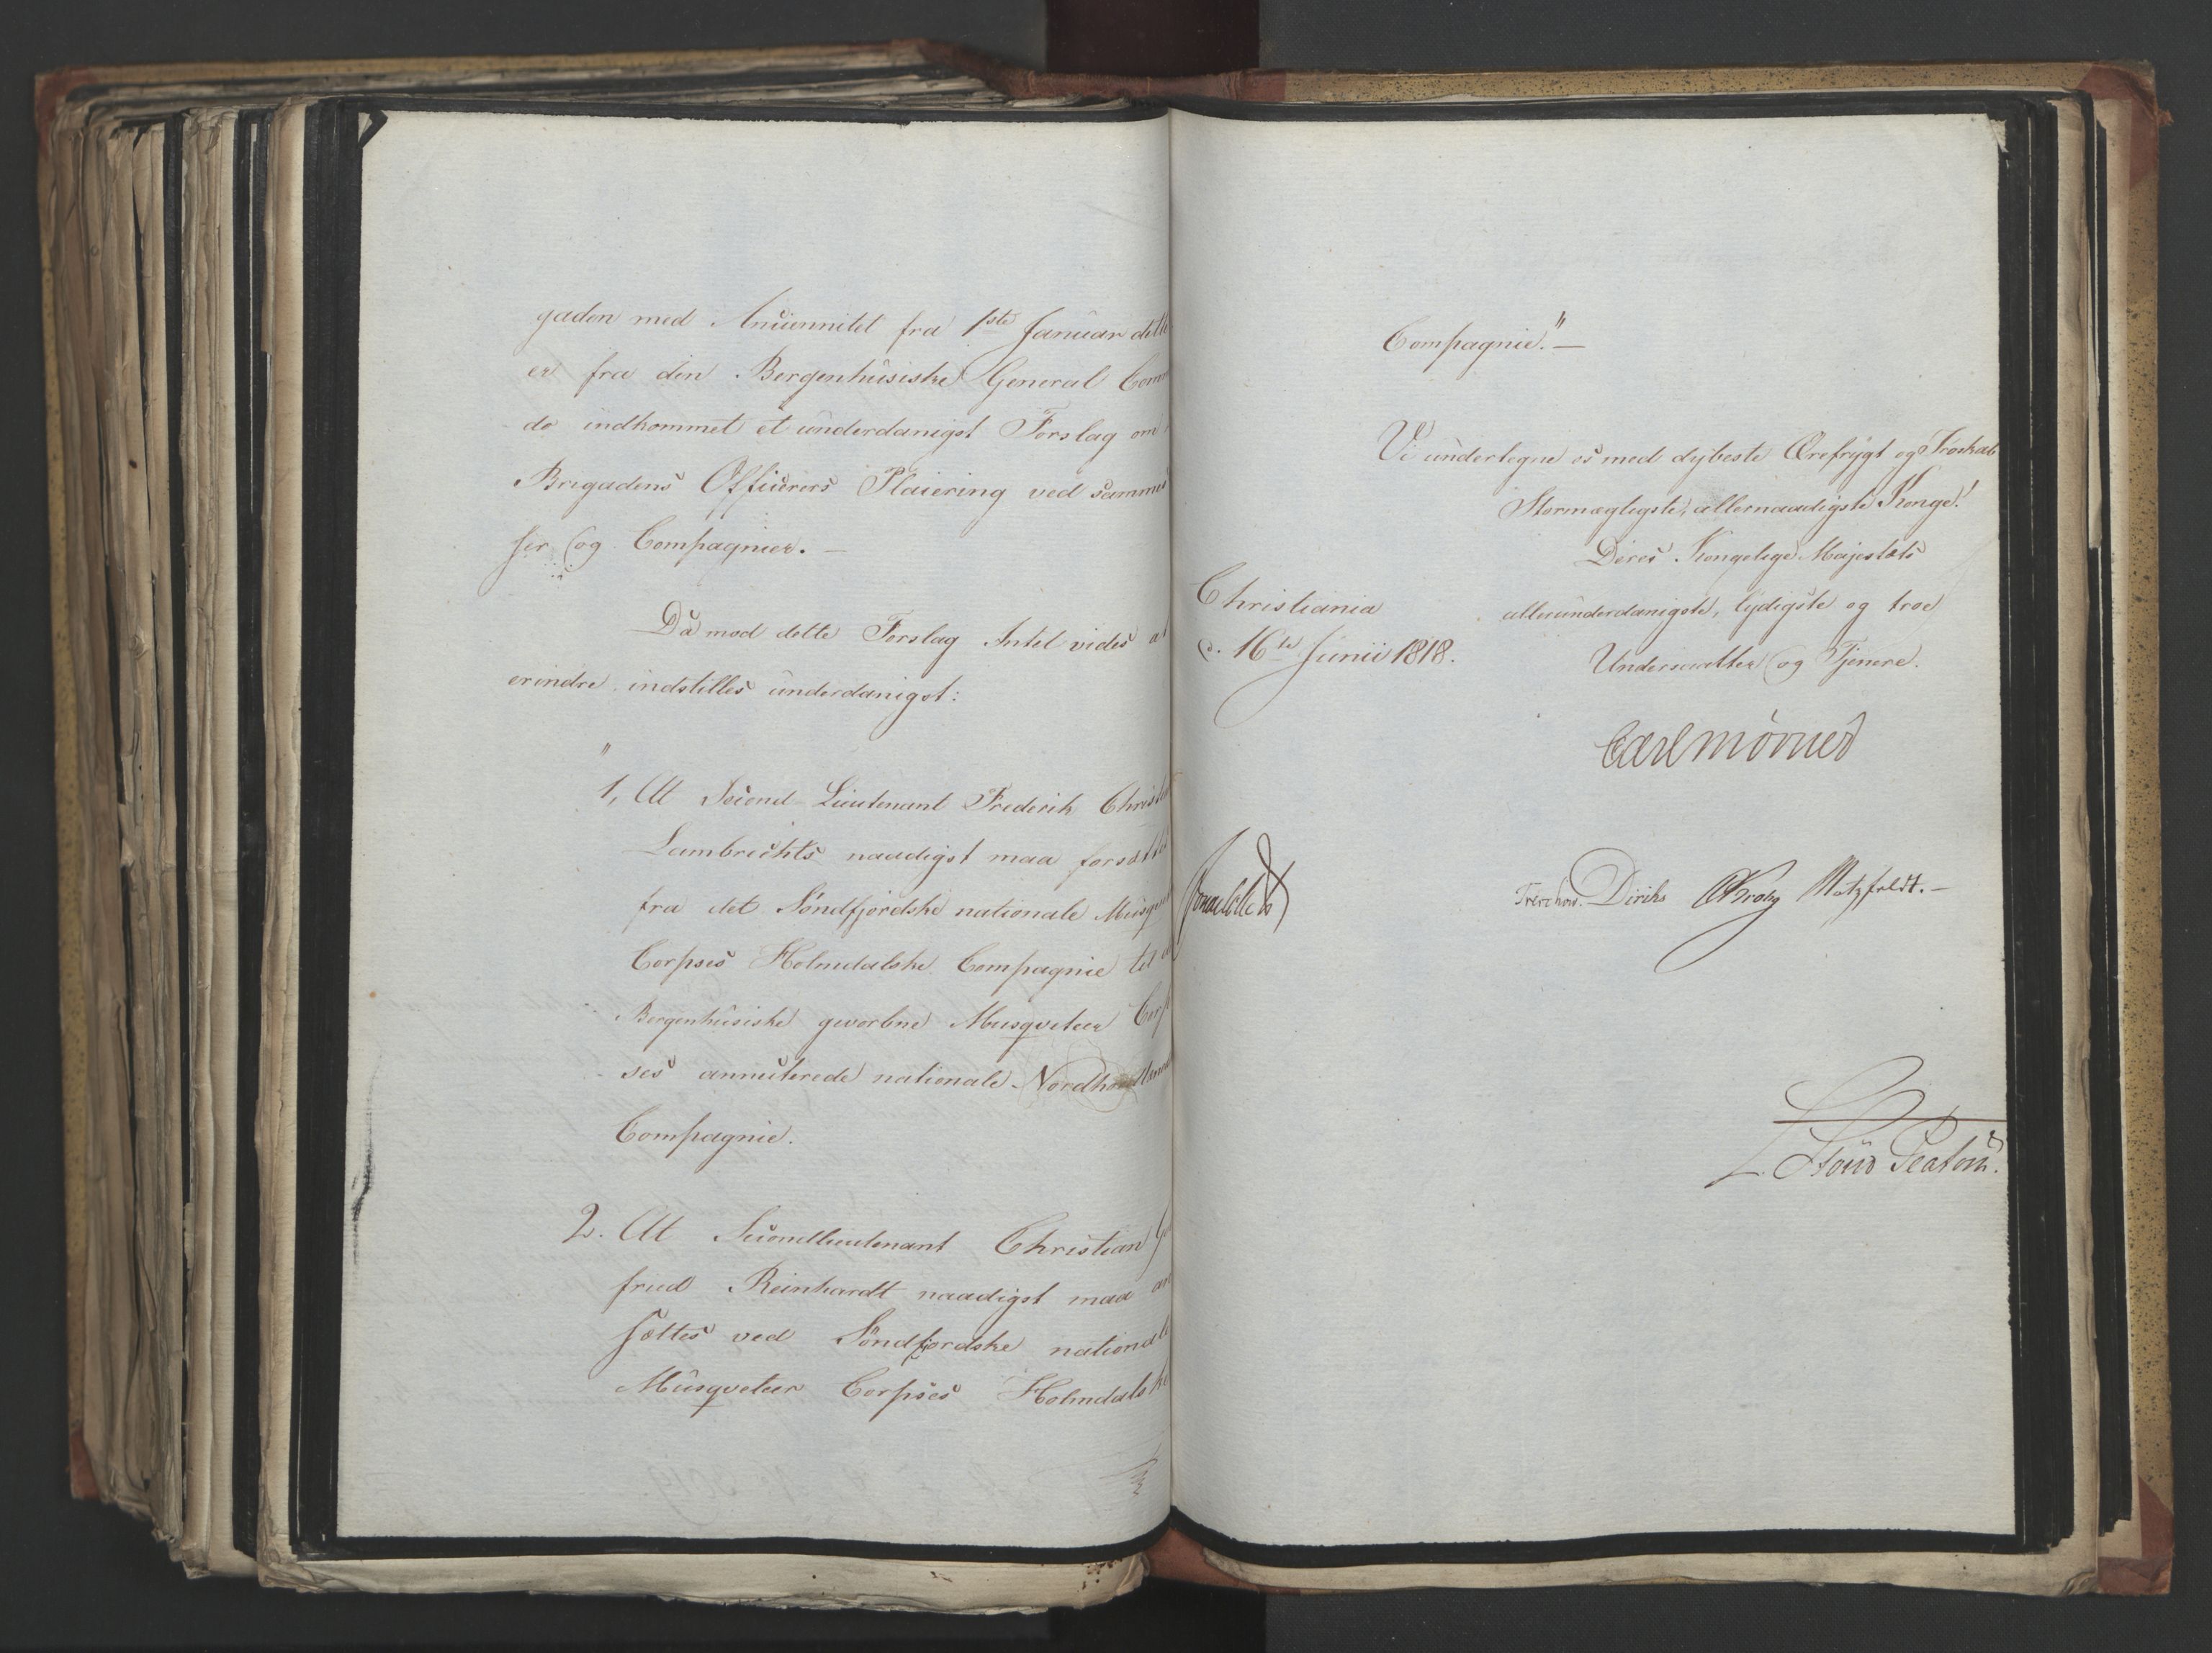 gaden med Anciennitet fra 1ste Januar dette
er fra den Bergenhusiske General Comm
do indkommet et underdanigst Forslag om
Brigadens Officerers Placering ved sammes
ser og Compagnier. —
Da mod dette Forslag Intet vides at
erindre indstilles underdanigst:
"
1, At Second-Lieutenant Frederik Christ
Lambrechts naadigst maa forsættes
fra det Søndfjordske nationale Musquet
Corpses Holmdalske Compagnie til
Bergenhusiske gevorbne Musqveteer Corp
ses annecterede nationale Nordhordlands
Compagnie.
2. At Secondlieutenant Christian
fried Reinhardt naadigst maa an
sættes ved Søndfjordske nationale
Musqveteer Corpses Holmdalske
Compagnie." —
Vi undertegne os med dybeste Ærefrygt og Troskab
Stormægtigste, allernaadigste Konge!
Deres Kongelige Majestæts
Christiania
allerunderdanigste, lydigste og troe
d. 16de Junii 1818.
Undersaatter og Tjenere.
Carl Mörner
Treschow. Diriks Krohg Motzfeldt. —
L. Stoud Platou.